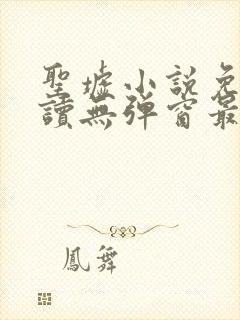 聖墟小說免
讀無彈窗最
鳳舞